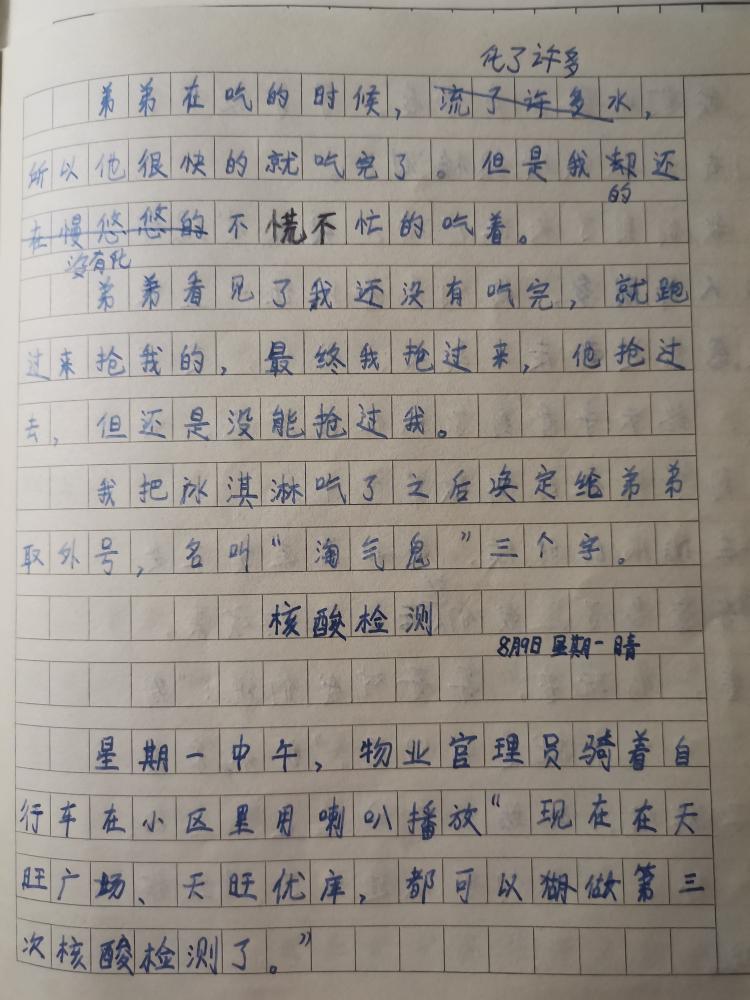 化了许多
弟弟在吃的时候，流了许多水，
所以他很快的就吃完了。但是我却还
的
在慢悠悠的不慌不忙的吃着。
没有化
弟弟看见了我还没有吃完，就跑
过来抢我的，最终我抢过来，他抢过
去，但还是没能抢过我。
我把冰淇淋吃了之后决定给弟弟
取外号，名叫“淘气鬼”三个字。
核酸检测
8月9日 星期一 晴
星期一中午，物业官理员骑着自
行车在小区里用喇叭播放“现在在天
旺广场、天旺优库，都可以做第三
次核酸检测了。”